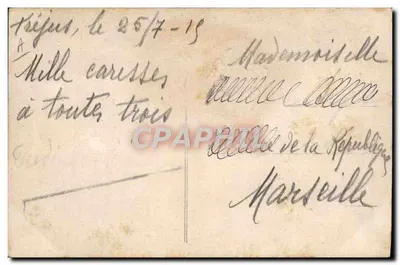 Fréjus, le 25/7-15
Mille caresses
à toutes trois
Mademoiselle
de la République
Marseille
CPARAMA